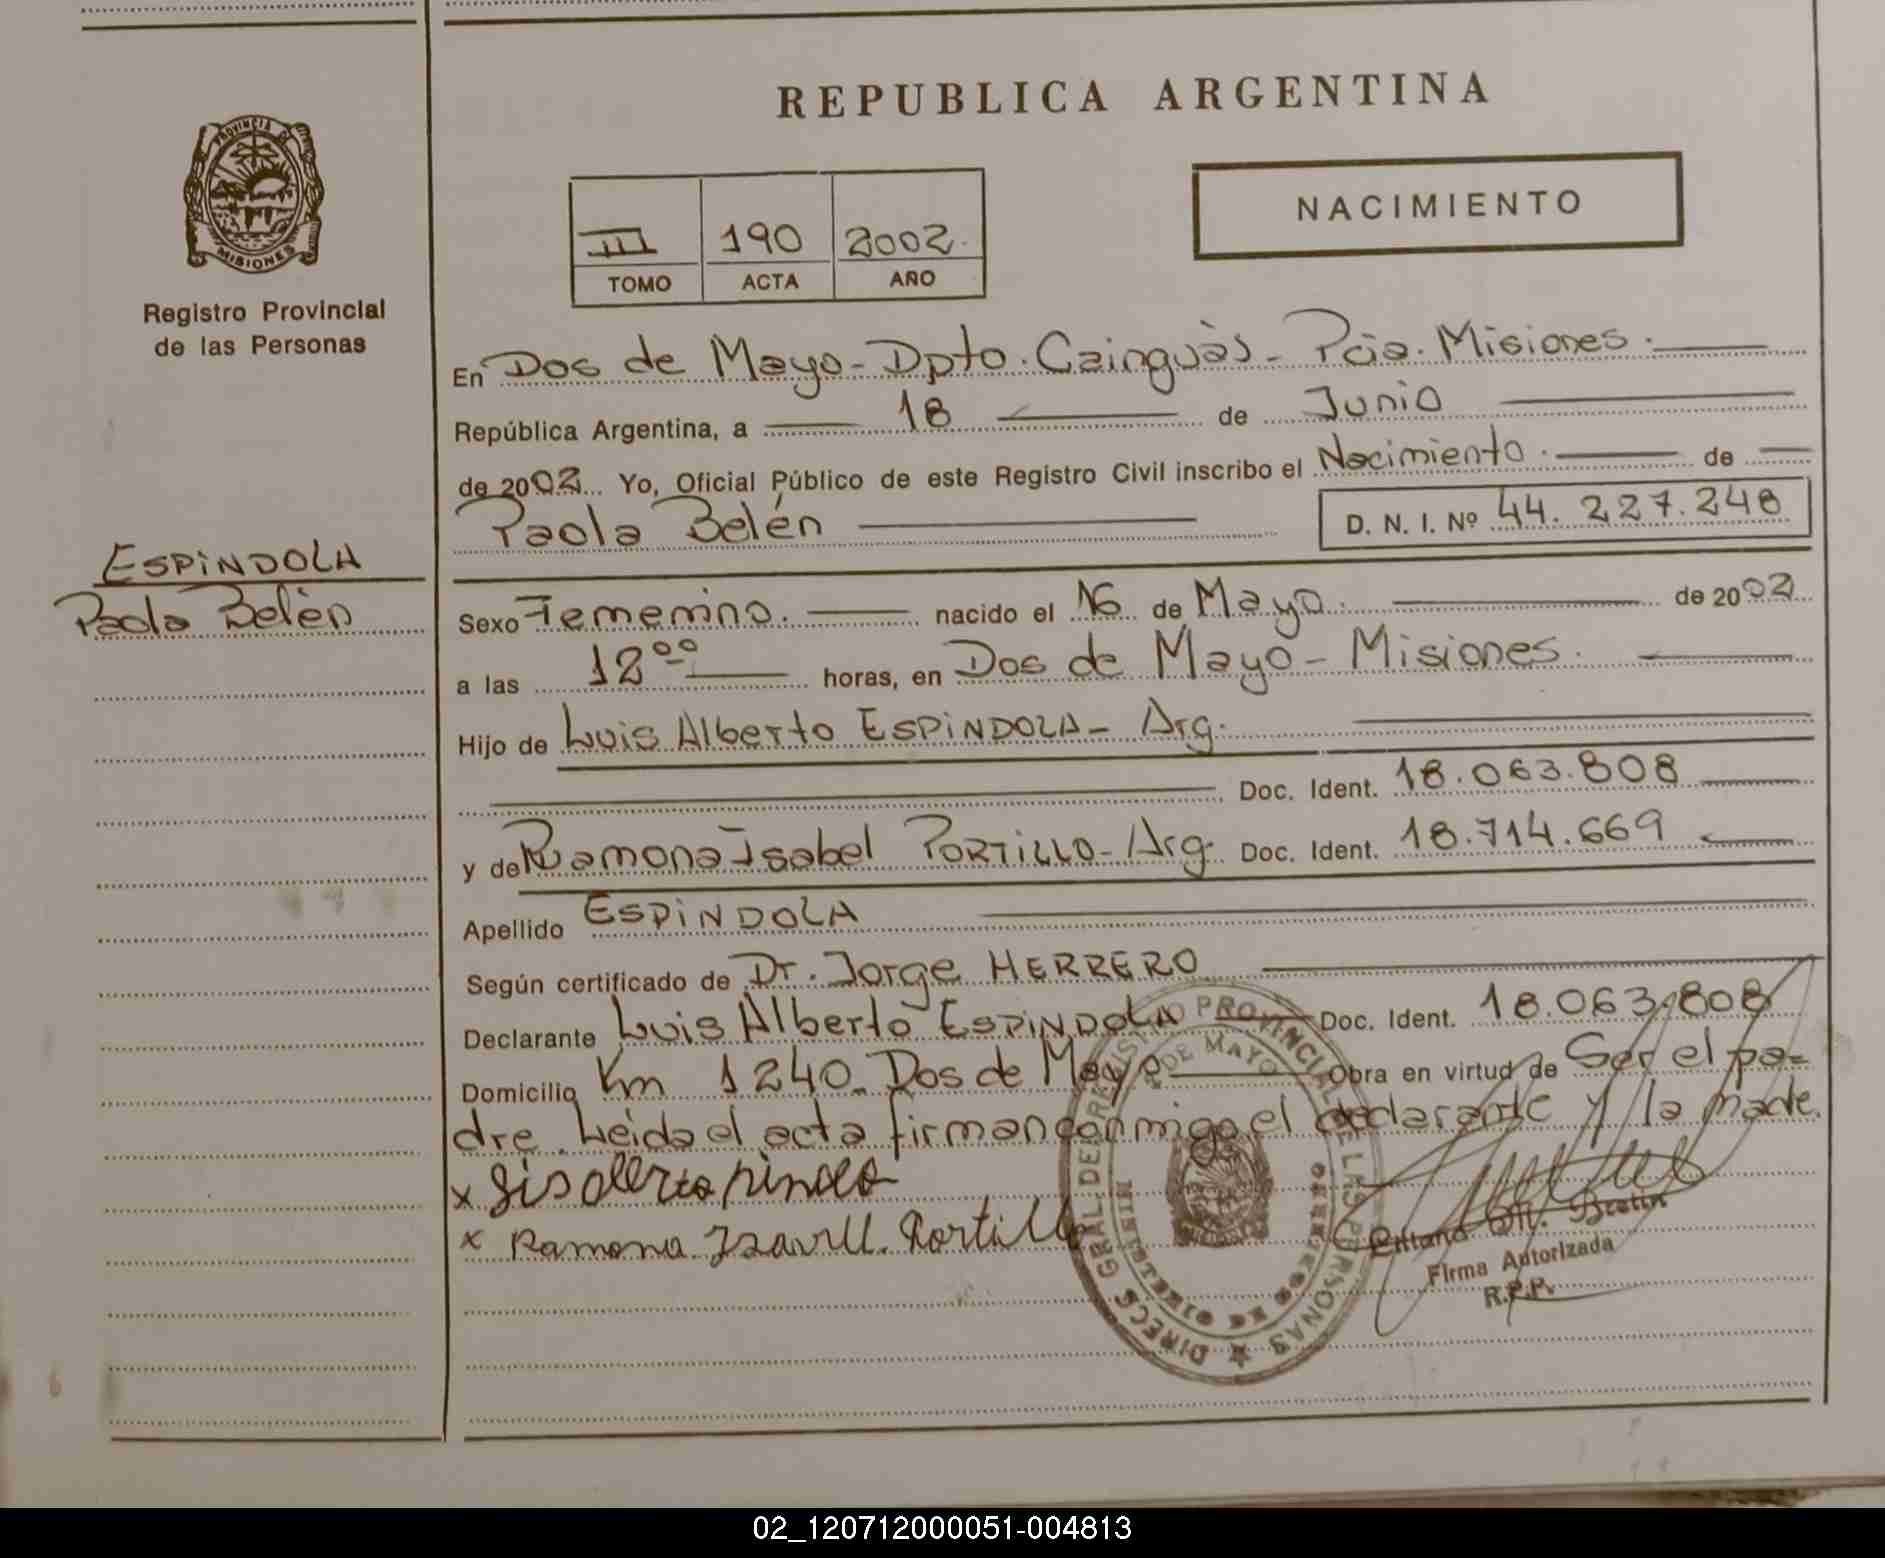 REPUBLICA ARGENTINA
PROVINCIA DE
MISIONES
Registro Provincial
de las Personas
NACIMIENTO
III 190 2002.
TOMO ACTA AÑO
En Dos de Mayo - Dpto. Cainguàs - Pcia. Misiones.
República Argentina, a 18 de Junio
de 2002 Yo, Oficial Público de este Registro Civil inscribo el Nacimiento. de
Paola Belén D. N. I. Nº 44.227.248
ESPiNDOLA
Paola Belén
Sexo Femenino. nacido el 16 de Mayo. de 2002
a las 12ºº horas, en Dos de Mayo - Misiones.
Hijo de Luis Alberto ESPiNDOLA - Arg.
Doc. Ident. 18.063.808
y de Ramona Isabel PORTiLLO - Arg. Doc. Ident. 18.714.669
Apellido ESPiNDOLA
Según certificado de Dr. Jorge HERRERO
Declarante Luis Alberto ESPiNDOLA Doc. Ident. 18.063.808
Domicilio Km 1240 - Dos de Mayo Obra en virtud de Ser el pa-
dre. Leída el acta firman conmigo el declarante y la madre.
x
x Ramona Portillo
DIRECC GRAL DEL REGISTRO PROVINCIAL DE LAS PERSONAS
2 DE MAYO
Firma Autorizada
R.P.P.
02_120712000051-004813